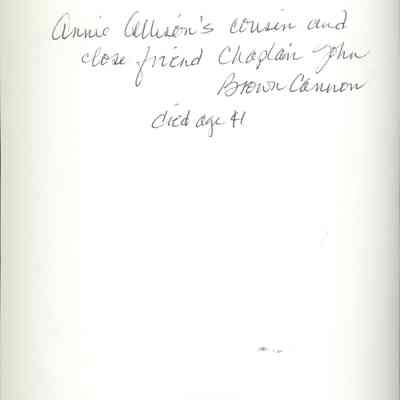 Annie Allison's cousin and
close friend Chaplain John
Brown Cannon
died age 41